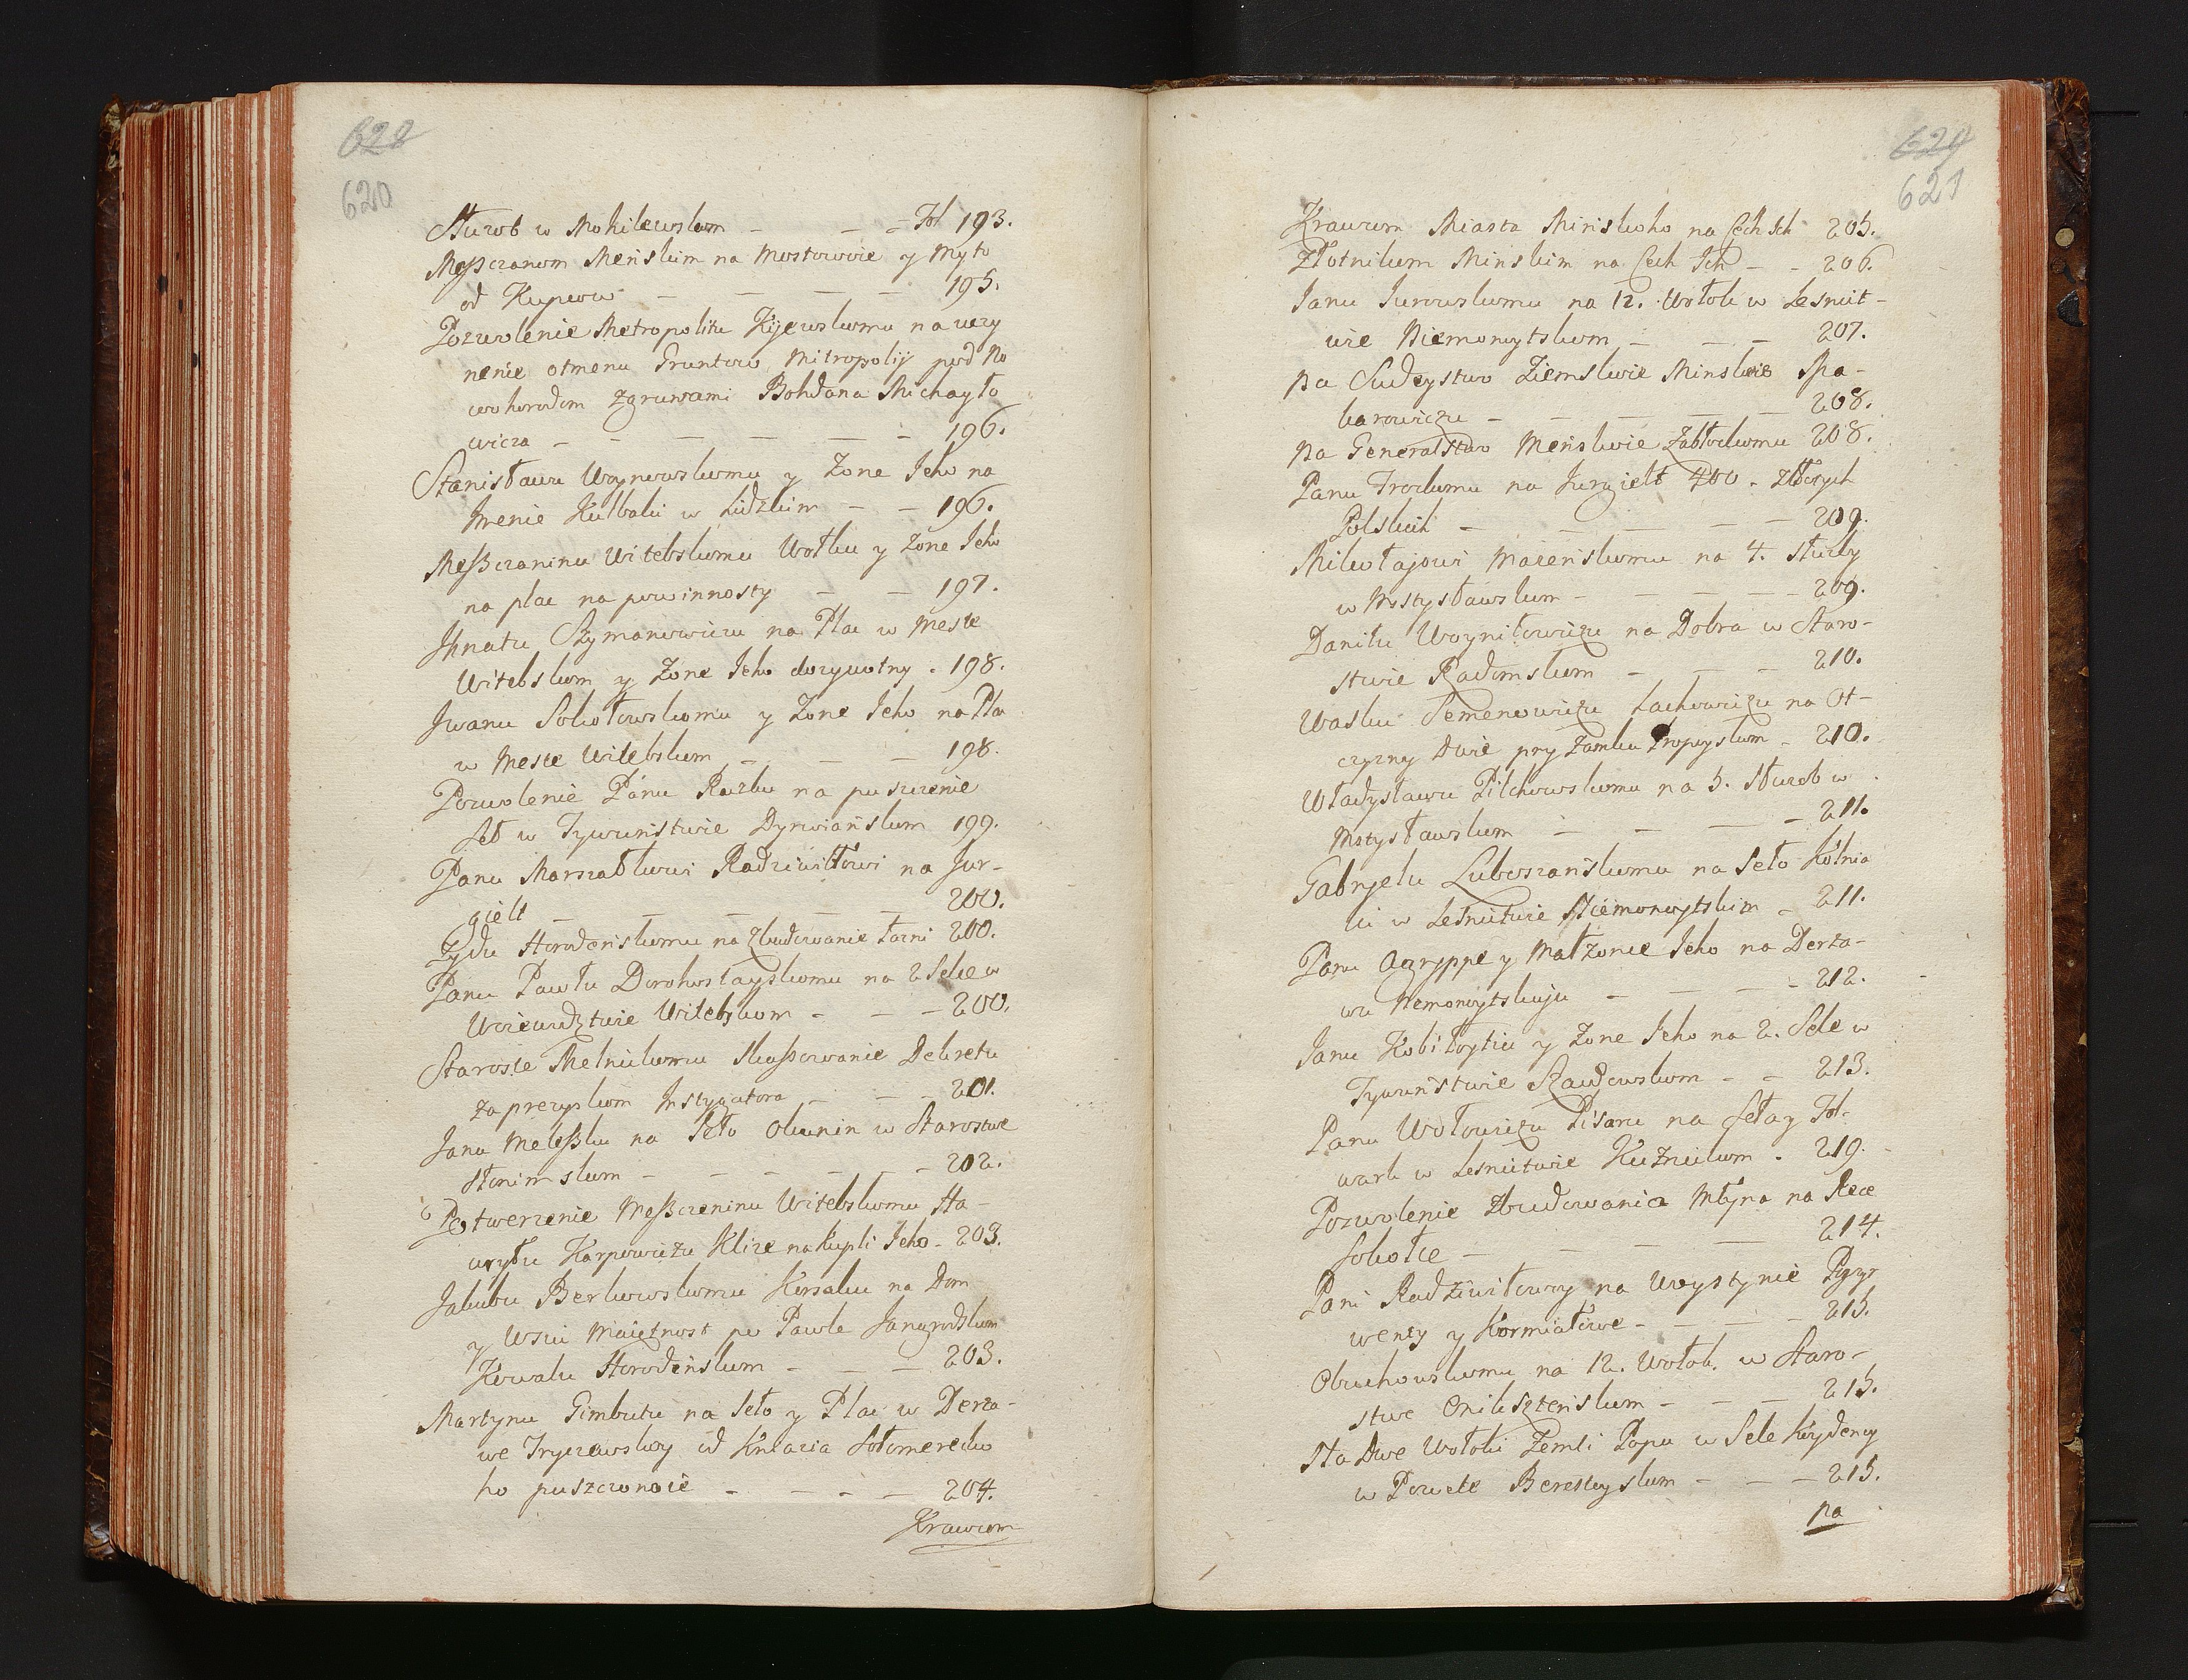 628
620
Służb w Mohilewskom - - - Fol 193.
Meßczanom Meńskim na Mostowoie y Myto
od Kupcow - - - - 195.
Pozwolenie Metropolitu Kijewskomu na uczy
nenie otmenu Gruntow Mitropolij pod No
wohorodom zgruntami Bohdana Michayło
wicza - - - - - - 196.
Stanisławu Woynowskomu y Zone Jeho na
Imenie Kulbaki w Lidzkim - - 196.
Meßczaninu Witebskomu Wołku y Zone Jeho
na plac na powinnosty - - 197.
Ihnatu Szymanowiczu na Plac w Meste
Witebskom y Zone Jeho dożywotny - 198.
Iwanu Sokołowskomu y Zone Jeho na Plac
w Meste Witebskom - - - 198.
Pozwolenie Panu Raczku na puszczenie
Seł w Tywuństwie Dyrwiańskom 199.
Panu Marszałkowi Radziwiłłowi na Jur-
gielt - - - - - 200.
Zydu Horodeńskomu na Zbudowanie Łazni 200.
Panu Pawłu Dorohostayskomu na 2 Selce w
Woiewudztwie Witebskom - - - 200.
Staroste Melnickomu Skaßowanie Dekretu
za prezyskom Instygatora - - - 201.
Janu Meleßku na Seło Okunin w Starostwe
Słonimskom - - - - - - 202.
Potwerżenie Meßczeninu Witebskomu Ha-
wryłu Karpowiczu Klize na Kupli Jeho - 203.
Jakubu Berkowskomu Korsaku na Dom
y Wsiu Maiętnost po Pawle Janogrodskom
Kowalu Horodeńskom - - - 203.
Martynu Gimbutu na Seło y Plac w Derża-
we Tryczewskoy od Kniazia Sołomerecko
ho puszczonoie - - - - 204.
Krawcom
629
621
Krawcom Miasta Mińskoho na Cech Ich 205.
Złotnikom Minskim na Cech Ich - - 206.
Janu Jurowskomu na 12. Wołok w Lesnict-
wie Niemonoytskom - - - 207.
Na Sudeystwo Ziemskoie Minskoie Ma-
karowiczu - - - - - 208.
Na Generalstwo Meńskoie Zabłockomu 208.
Panu Trockomu na Jurgielt 400. Złotych
Polskich - - - - - 209.
Mikołajowi Maieńskomu na 4. Służby
w Mstysławskom - - - - - 209.
Daniłu Woyniłowiczu na Dobra w Staro-
stwie Radomskom - - - 210.
Wasku Semenowiczu Lachowiczu na Ot-
czyzny Dwie pry Zamku Propoyskom - 210.
Władysławu Pilchowskomu na 5. Służob w
Mstysławskom - - - - 211.
Gabryelu Luboszańskomu na Seło Kotnia
ki w Lesnictwie Niemonoytskim - 211.
Panu Agryppe y Małżonce Jeho na Derża-
wu Nemonoytskuju - - - - 212.
Janu Kobiłoytiu y Zone Jeho na 2. Sele w
Tywuństwie Szawdowskom - - 213.
Panu Wołowiczu Pisaru na Seła y Fol-
wark w Lesnictwie Kuznickom - 219.
Pozwolenie Zbudowania Młyna na Rece
Sokołce - - - - 214.
Pani Radziwiłowoy na Woystynie Pozyr
wency y Kormiałowe - - - - 215.
Obuchowskomu na 12. Wołok. w Staro-
stwe Onikszteńskom - - - 215.
Na Dwe Wołoki Zemli Popu w Sele Koydeny
w Powete Bereskyskom - - - 215.
Na